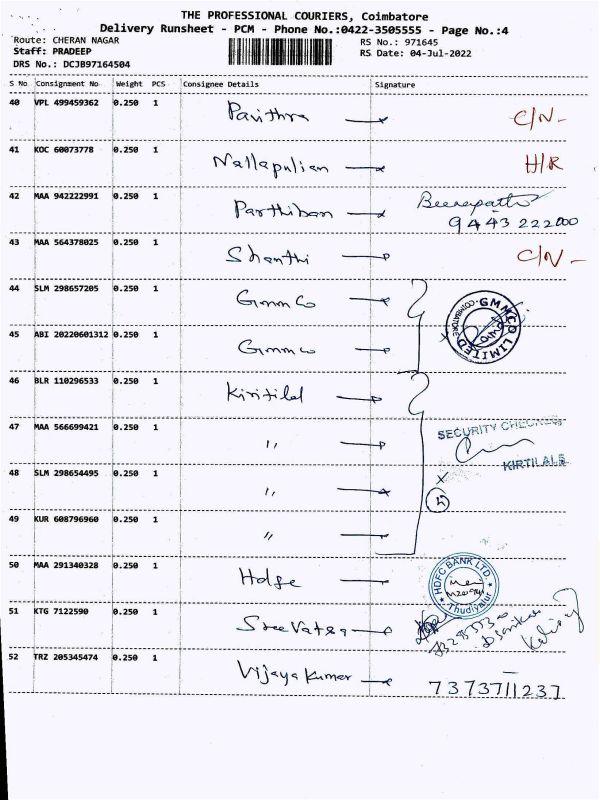 THE PROFESSIONAL COURIERS, Coimbatore
Delivery Runsheet - PCM - Phone No.:0422-3505555 - Page No.:4
Route: CHERAN NAGAR RS No.: 971645
Staff: PRADEEP RS Date: 04-Jul-2022
DRS No.: DCJB97164504
S No Consignment No Weight PCS Consignee Details Signature
40 VPL 499459362 0.250 1 Pavithra C/N-
41 KOC 60073778 0.250 1 Nallapulian H/R
42 MAA 942222991 0.250 1 Parthiban
9443222000
43 MAA 564378025 0.250 1 Shanthi C/N-
44 SLM 298657205 0.250 1 Gmmco
GMMCO LIMITED
COIMBATORE
45 ABI 20220601312 0.250 1 Gmmco
46 BLR 110296533 0.250 1 Kiritilal
47 MAA 566699421 0.250 1 "
SECURITY CHECKED
KIRTILALS
48 SLM 298654495 0.250 1 "
49 KUR 608796960 0.250 1 "
50 MAA 291340328 0.250 1 Hdfc
HDFC BANK LTD.
Thudiyalur
51 KTG 7122590 0.250 1 SreeVatsa
52 TRZ 205345474 0.250 1 Vijaya Kumar 7373711237